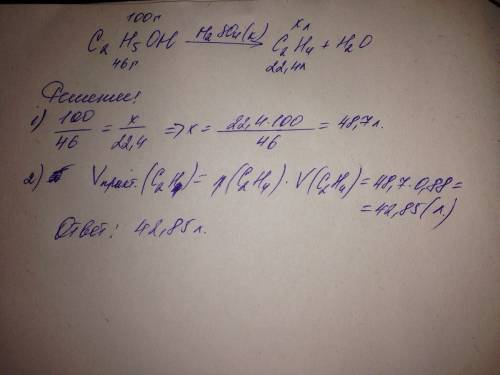 100г х л
C₂H₅OH —H₂SO₄(к)→ C₂H₄ + H₂O
46г 22,4л
Решение:
1) 100/46 = x/22,4 => x = 22,4·100/46 = 48,7 л.
2) Vпракт.(C₂H₄) = η(C₂H₄) · V(C₂H₄) = 48,7·0,88 =
= 42,85 (л.)
Ответ: 42,85 л.